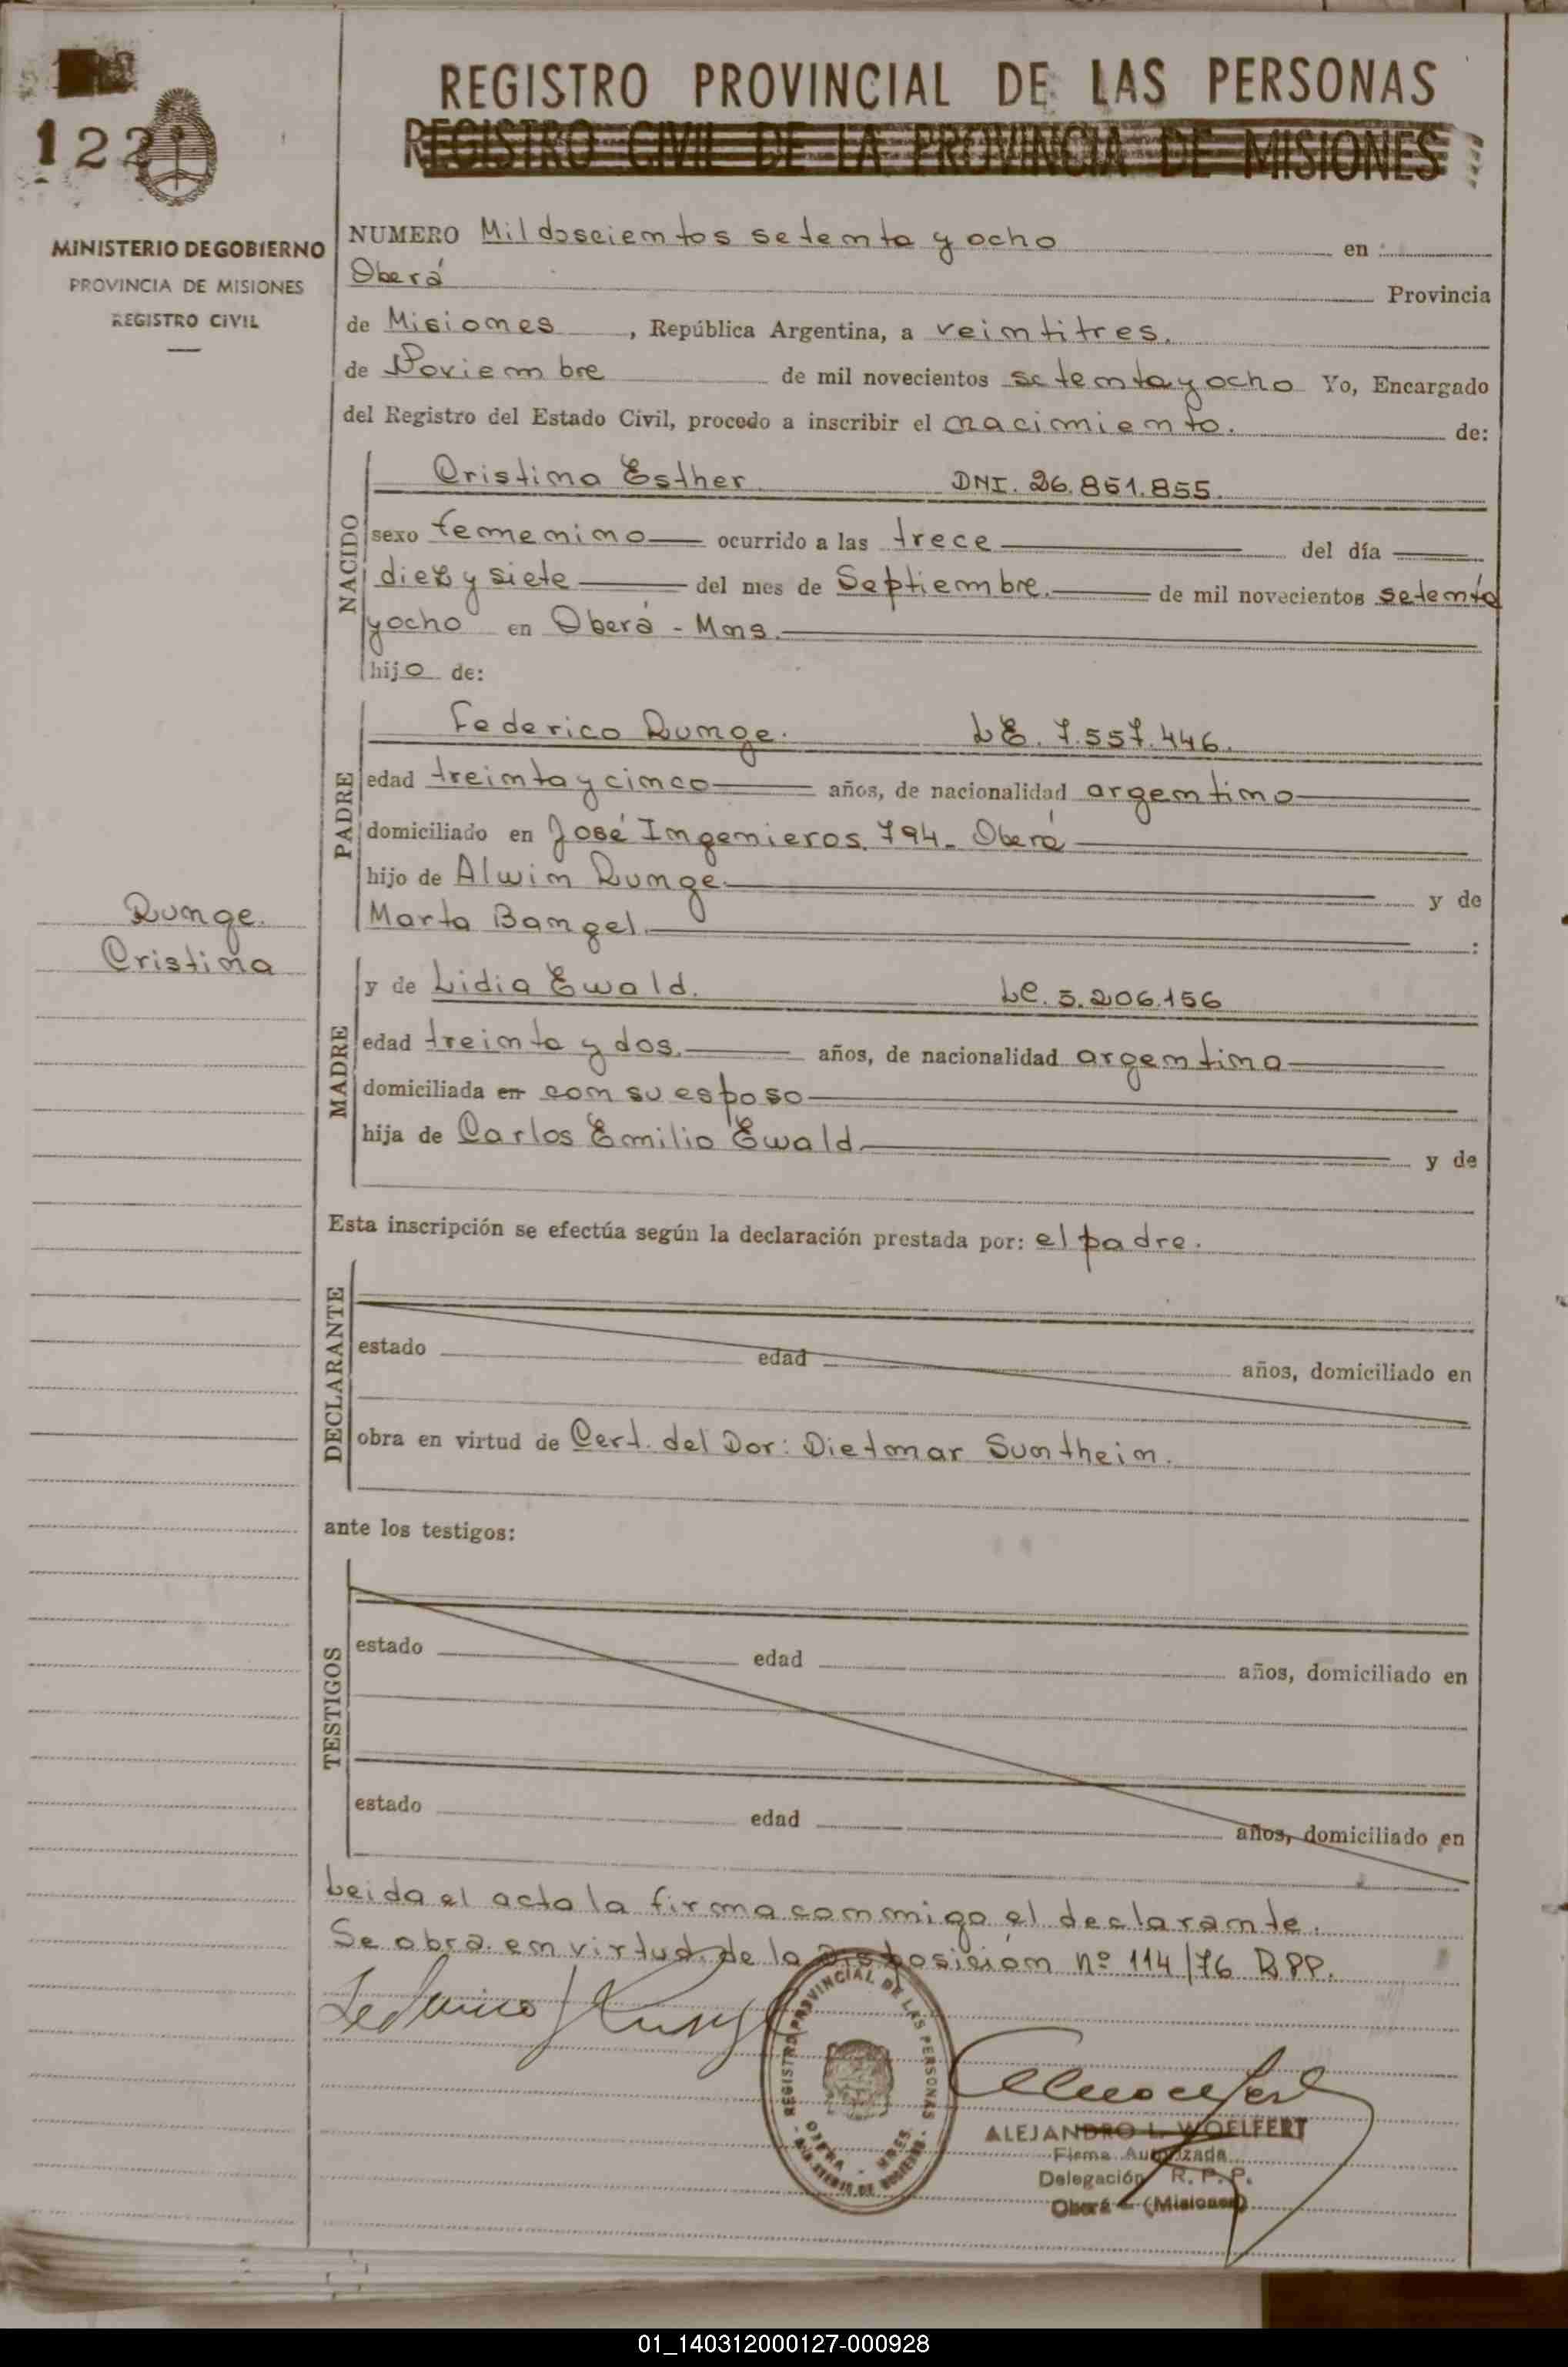 122
REGISTRO PROVINCIAL DE LAS PERSONAS
REGISTRO CIVIL DE LA PROVINCIA DE MISIONES
MINISTERIO DE GOBIERNO
PROVINCIA DE MISIONES
REGISTRO CIVIL
NUMERO Mil doscientos setenta y ocho en
Oberá Provincia
de Misiones, República Argentina, a veintitres.
de Noviembre de mil novecientos setenta y ocho Yo, Encargado
del Registro del Estado Civil, procedo a inscribir el nacimiento. de:
NACIDO
Cristina Esther DNI. 26.861.855.
sexo femenino ocurrido a las trece del día
diez y siete del mes de Septiembre. de mil novecientos setenta
y ocho en Oberá - Mns.
hijo de:
PADRE
Federico Runge. LE. 7.557.446.
edad treinta y cinco años, de nacionalidad argentino
domiciliado en José Ingenieros. 794. Oberá
hijo de Alwin Runge y de
Marta Bangel.
Runge.
Cristina
MADRE
y de Lidia Ewald. LC. 5.206.156
edad treinta y dos. años, de nacionalidad argentina
domiciliada en con su esposo
hija de Carlos Emilio Ewald y de
Esta inscripción se efectúa según la declaración prestada por: el padre.
DECLARANTE
estado edad años, domiciliado en
obra en virtud de Cert. del Dor: Dietmar Suntheim.
ante los testigos:
TESTIGOS
estado edad años, domiciliado en
estado edad años, domiciliado en
Leida el acta la firma conmigo el declarante.
Se obra en virtud de la Disposición nº 114/76 RPP.
Federico Runge
REGISTRO PROVINCIAL DE LAS PERSONAS
OBERA - MNES.
MINISTERIO DE GOBIERNO
ALEJANDRO L. WOELFERT
Firma Autorizada
Delegación R. P. P.
Oberá - (Misiones)
01_140312000127-000928